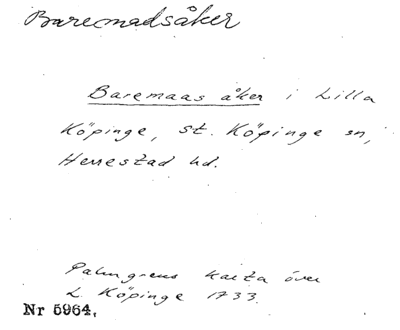 Baremadsåker
Baremaas åker i Lilla
Köpinge, St. Köpinge sn,
Herrestad hd.
Palmgrens karta över
L. Köpinge 1733.
Nr 5964.